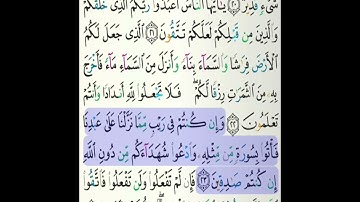 شَىْءٍ قَدِيرٌ ٢٠ يَٰٓأَيُّهَا ٱلنَّاسُ ٱعْبُدُوا۟ رَبَّكُمُ ٱلَّذِى خَلَقَكُمْ
وَٱلَّذِينَ مِن قَبْلِكُمْ لَعَلَّكُمْ تَتَّقُونَ ٢١ ٱلَّذِى جَعَلَ لَكُمُ
ٱلْأَرْضَ فِرَٰشًا وَٱلسَّمَآءَ بِنَآءً وَأَنزَلَ مِنَ ٱلسَّمَآءِ مَآءً فَأَخْرَجَ
بِهِۦ مِنَ ٱلثَّمَرَٰتِ رِزْقًا لَّكُمْ فَلَا تَجْعَلُوا۟ لِلَّهِ أَندَادًا وَأَنتُمْ
تَعْلَمُونَ ٢٢ وَإِن كُنتُمْ فِى رَيْبٍ مِّمَّا نَزَّلْنَا عَلَىٰ عَبْدِنَا
فَأْتُوا۟ بِسُورَةٍ مِّن مِّثْلِهِۦ وَٱدْعُوا۟ شُهَدَآءَكُم مِّن دُونِ ٱللَّهِ
إِن كُنتُمْ صَٰدِقِينَ ٢٣ فَإِن لَّمْ تَفْعَلُوا۟ وَلَن تَفْعَلُوا۟ فَٱتَّقُوا۟